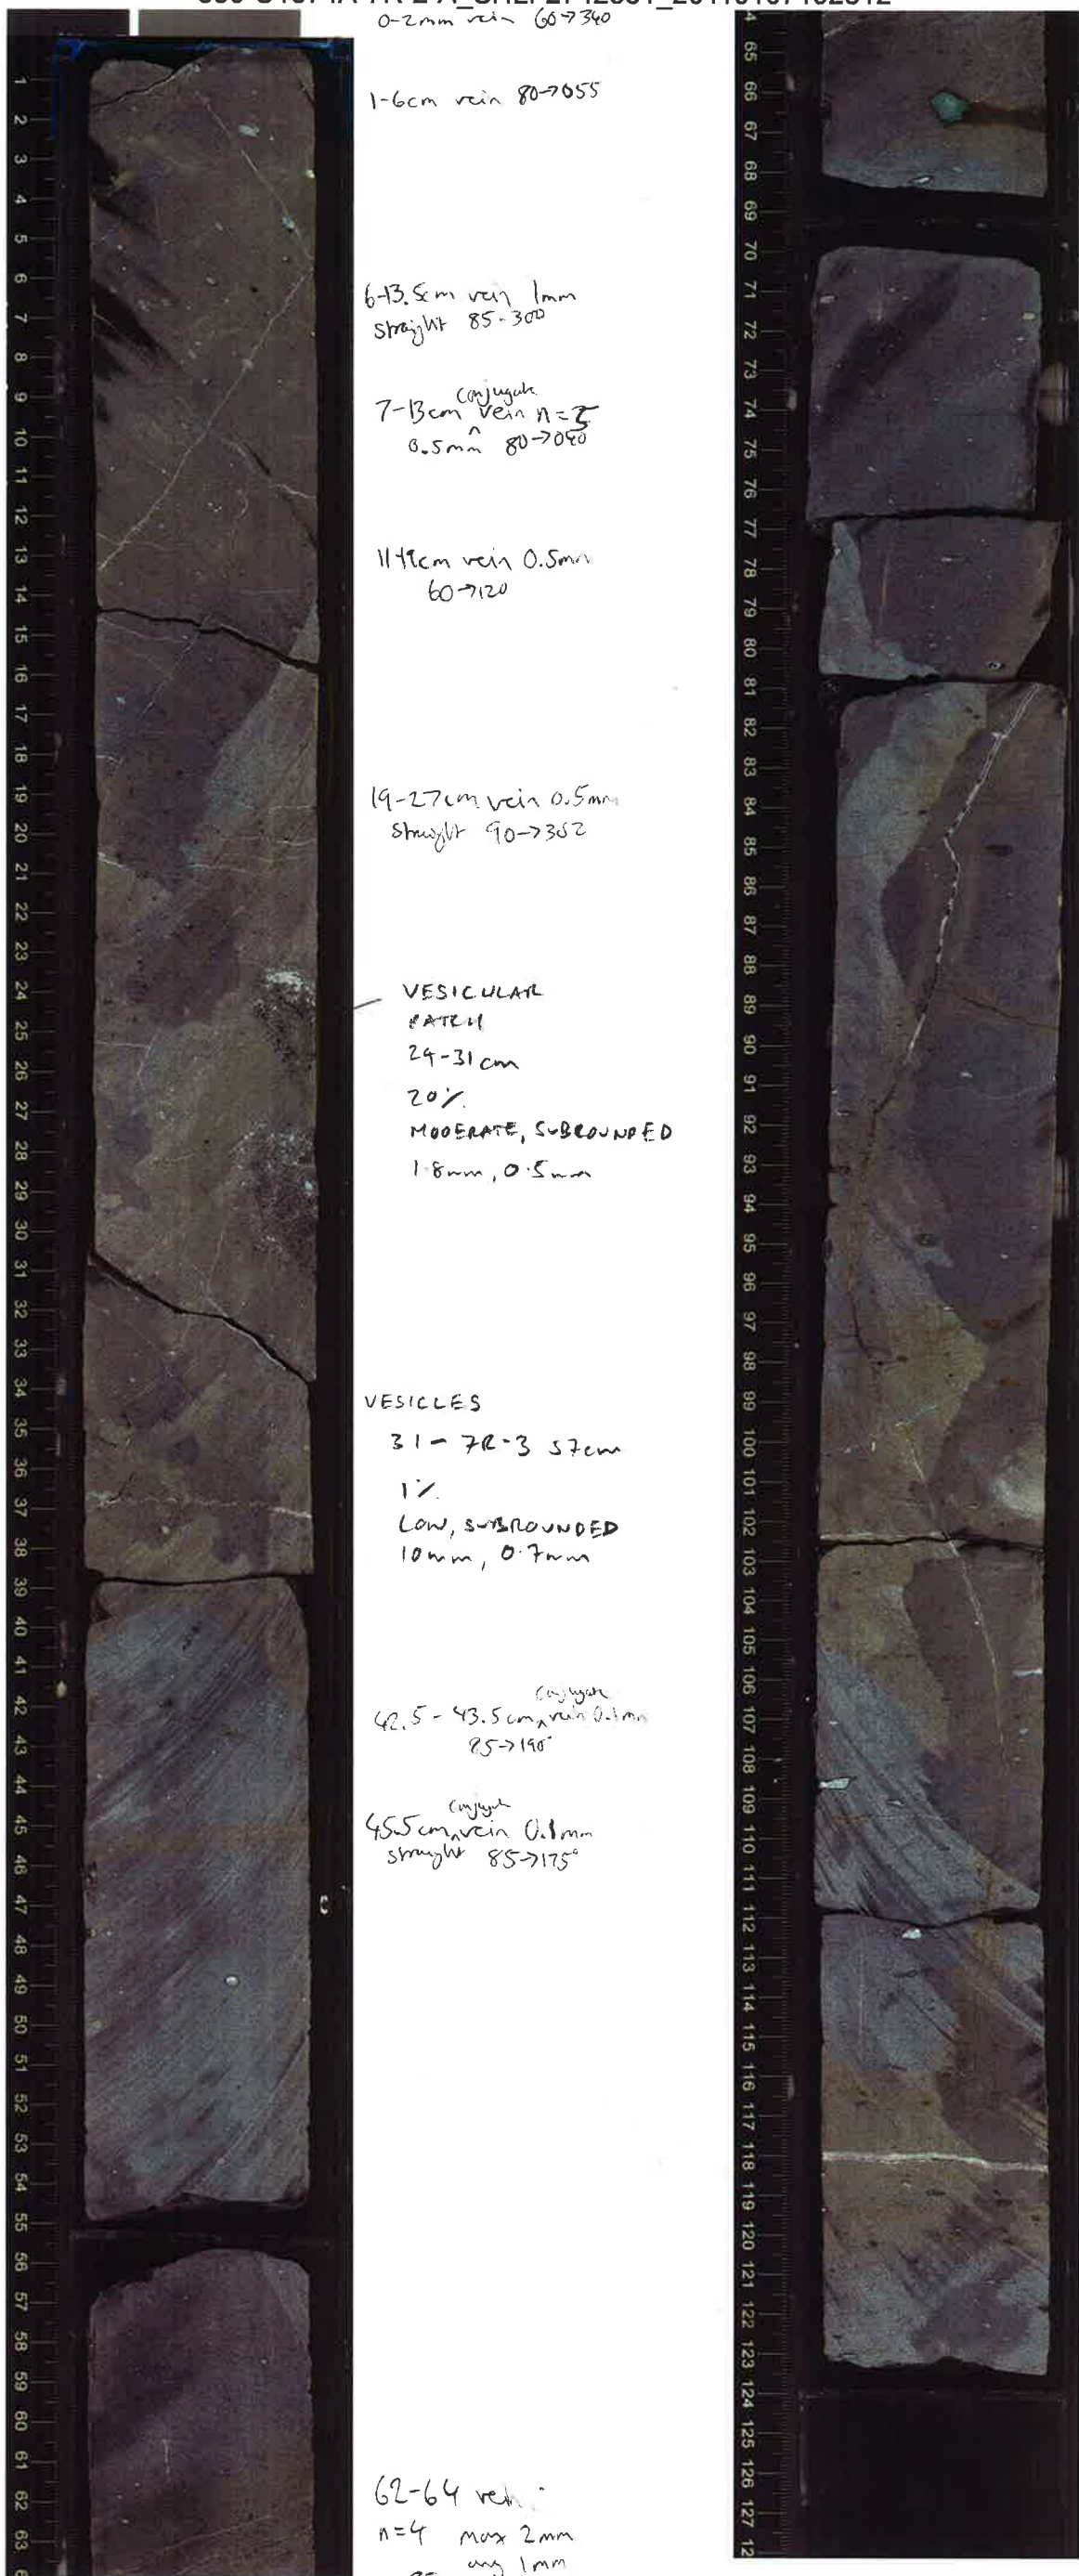 0-2mm vein 60→340
1-6cm vein 80→055
6-13.5cm vein 1mm
straight 85-300
conjugate
7-13cm ^ vein n=5
0.5mm 80→090
11-19cm vein 0.5mm
60→120
19-27cm vein 0.5mm
straight 90→302
VESICULAR
PATCH
24-31 cm
20%
MODERATE, SUBROUNDED
1.8mm, 0.5mm
VESICLES
31 - 7R-3 57cm
1%
LOW, SUBROUNDED
10mm, 0.7mm
conjugate
42.5 - 43.5cm ^ vein 0.1mm
85→190°
conjugate
45.5cm ^ vein 0.1mm
straight 85→175°
62-64 vein
n=4 max 2mm
avg 1mm
1
2
3
4
5
6
7
8
9
10
11
12
13
14
15
16
17
18
19
20
21
22
23
24
25
26
27
28
29
30
31
32
33
34
35
36
37
38
39
40
41
42
43
44
45
46
47
48
49
50
51
52
53
54
55
56
57
58
59
60
61
62
63
65
66
67
68
69
70
71
72
73
74
75
76
77
78
79
80
81
82
83
84
85
86
87
88
89
90
91
92
93
94
95
96
97
98
99
100
101
102
103
104
105
106
107
108
109
110
111
112
113
114
115
116
117
118
119
120
121
122
123
124
125
126
127